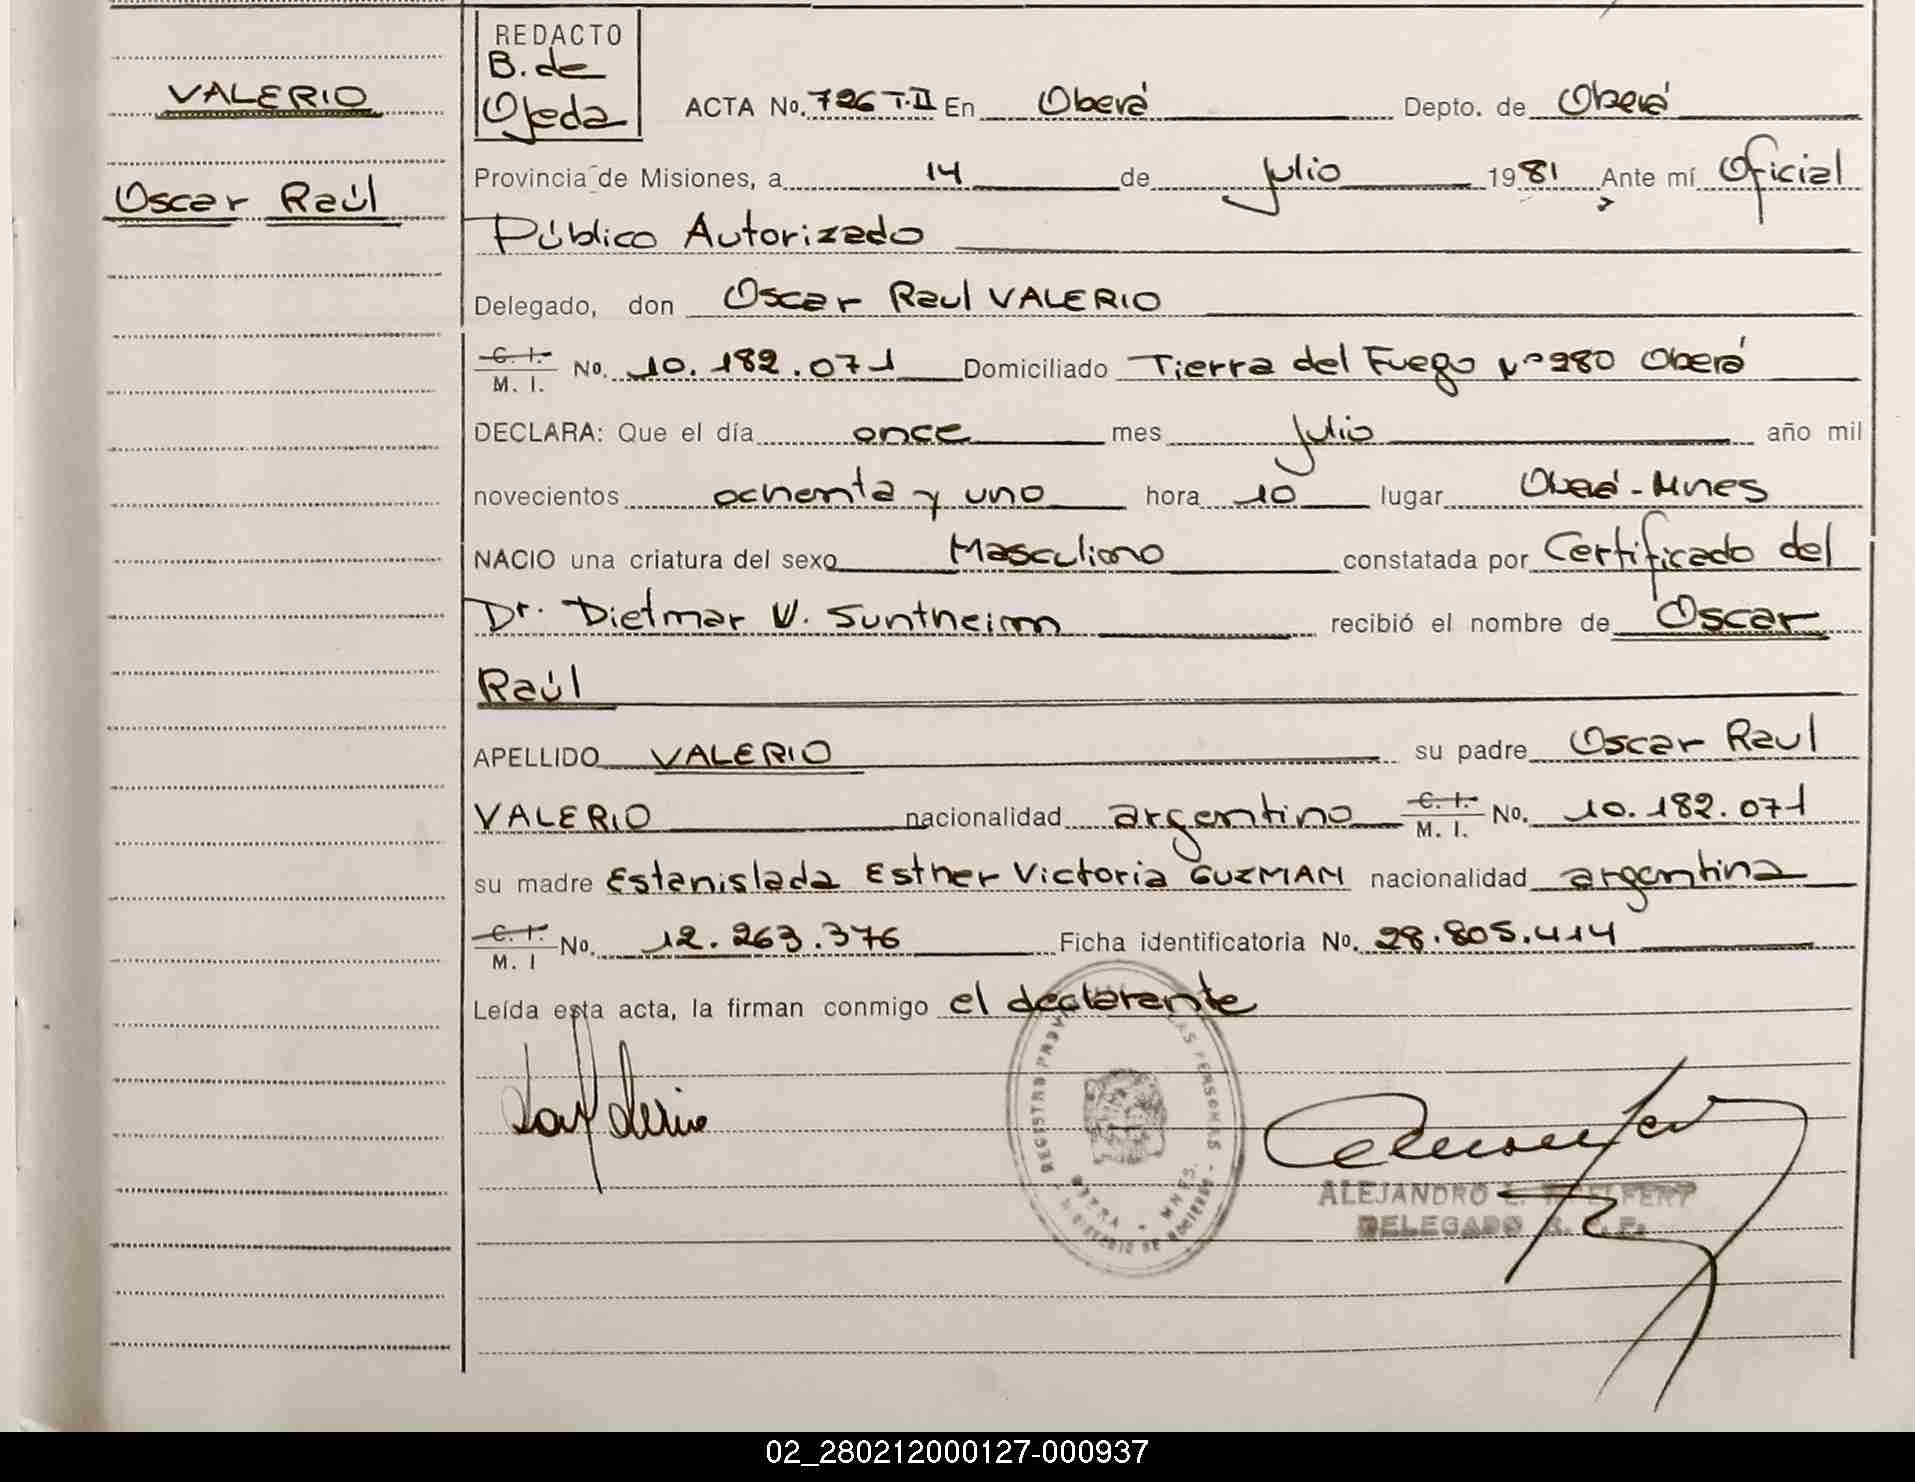 VALERIO
Oscar Raúl
REDACTO
B. de
Ojeda
ACTA No. 726 T.II En Oberá Depto. de Oberá
Provincia de Misiones, a 14 de Julio 1981 Ante mí Oficial
Público Autorizado
Delegado, don Oscar Raul VALERIO
C. I. / M. I. No. 10.182.071 Domiciliado Tierra del Fuego Nº 280 Oberá
DECLARA: Que el día once mes Julio año mil
novecientos ochenta y uno hora 10 lugar Oberá - Mnes
NACIO una criatura del sexo Masculino constatada por Certificado del
Dr. Dietmar W. Suntheim recibió el nombre de Oscar
Raúl
APELLIDO VALERIO su padre Oscar Raul
VALERIO nacionalidad argentino C. I. / M. I. No. 10.182.071
su madre Estanislada Esther Victoria GUZMAN nacionalidad argentina
C. I. / M. I No. 12.263.376 Ficha identificatoria No. 28.805.414
Leída esta acta, la firman conmigo el declarante
REGISTRO PROV LAS PERSONAS
OBERA - MNES.
MINISTERIO DE GOBIERNO
ALEJANDRO L.
DELEGADO R.
02_280212000127-000937